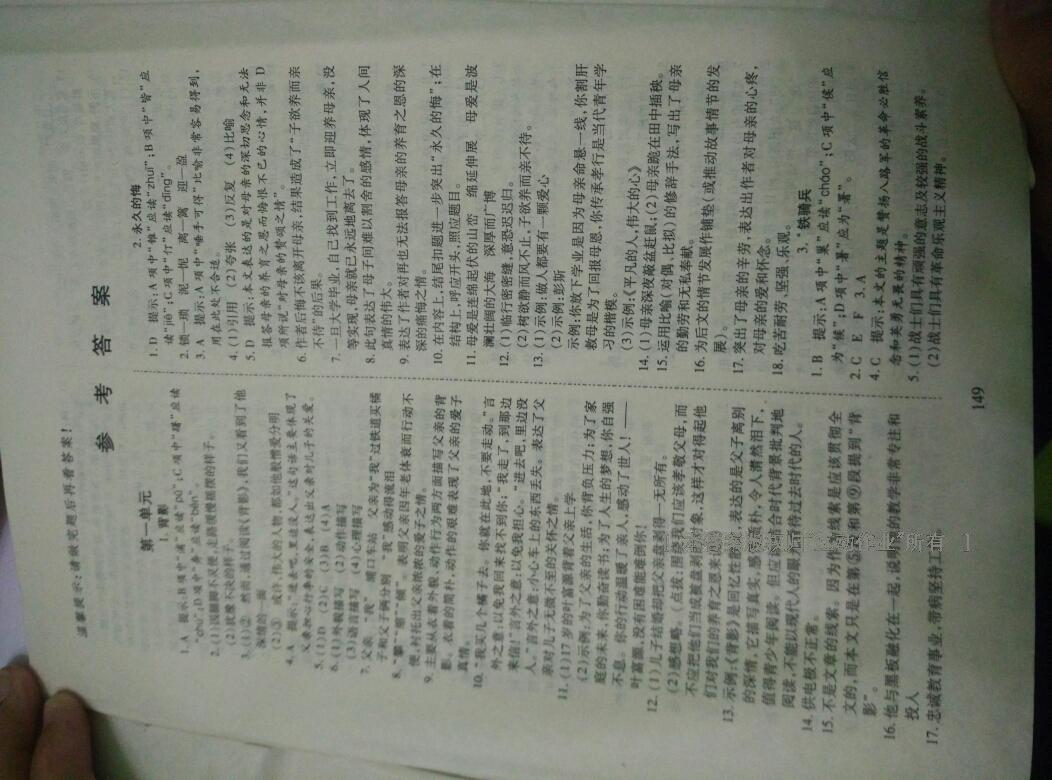 温馨提示:请做完题后再看答案!
参 考 答 案
第一单元
1. 背影
1. A 提示:B项中“蒲”应读“pú”;C项中“躇”应读
“chú”;D项中“奔”应读“bèn”
2. (1)因腿脚不灵便,走路缓慢摇摆的样子。
(2)很不的样子。
3. (1)② 然而,通过朗读《背影》,我们又看到了他
深情的一面
(2)③ 或许,伟大的人物,都如他般憎爱分明
4. A 提示:“进去吧,里边没人。”这句话主要体现了
父亲担心行李的安全,表达出父亲对儿子的关爱。
5. (1)D (2)C (3)B (4)A
6. (1)外貌描写 (2)动作描写
(3)语言描写 (4)心理描写
7. 父亲 “我” 浦口车站 父亲为“我”过铁道买橘
子和父子俩分别 “我”感动得流泪
8. “攀”“缩”“倾”。表明父亲因年老体衰而行动不
便,衬托出父亲浓浓的爱子之情。
9. 主要从衣着外貌、动作行为两方面描写父亲的背
影。衣着的简朴、动作的艰难表现了父亲的爱子
真情。
10. “我买几个橘子去。你就在此地,不要走动。”言
外之意:以免我回来找不到你;“我走了,到那边
来信!”言外之意:以免我担心。“进去吧,里边没
人。”言外之意:小心车上的东西丢失。表达了父
亲对儿子无微不至的关怀之情。
11. (1)17岁的叶富源背着父亲上学
(2)示例:为了父亲的生活,你背负压力;为了家
庭的未来,你勤奋读书;为了人生的梦想,你自强
不息。你的行动温暖了亲人,感动了世人!——
叶富源,没有困难能难倒你!
12. (1)儿子结婚却把父亲盘剥得一无所有。
(2)感想略。(点拨:围绕我们应该孝敬父母,而
不应把他们当成被盘剥的对象,这样才对得起他
们对我们的养育之恩来回
13. 示例:《背影》是回忆性散文,表达的是父子离别
的深情,它描写真实,感情质朴,令人潸然泪下,
值得青少年阅读。但应该结合时代背景批判地
阅读,不能以现代人的眼光看待过去时代的人。
14. 供电极不正常。
15. 不是文章的线索。因为作为线索是应该贯彻全
文的,而本文只是在第⑤段和第⑨段提到“背
影”。
16. 他与黑板融化在一起,说明他的教学非常专注和
投入
17. 忠诚教育事业,带病坚持上
2. 永久的悔
1. D 提示:A项中“椎”应读“zhuī”;B项中“皆”应
读“jiē”;C项中“仃”应读“dīng”
2. 锁—琐 泥—怩 离—篱 迎—盈
3. A 提示:A项中“唾手可得”比喻非常容易得到,
用在此处不合适。
4. (1)引用 (2)夸张 (3)反复 (4)比喻
5. D 提示:本文表达的是对母亲的深切思念和无法
报答母亲的养育之恩的悔恨不已的心情;并非D
项所说,对母亲的赞颂之情”。
6. 作者后悔不该离开母亲,结果造成了“子欲养而亲
不待”的后果。
7. 一旦大学毕业,自己找到工作,立即迎养母亲,没
等实现,母亲就已永远地离去了。
8. 此句表达了母子间难以割舍的感情,体现了人间
真情的伟大。
9. 表达了作者对再也无法报答母亲的养育之恩的深
深的痛悔之情。
10. 在内容上,结尾扣题进一步突出“永久的悔”;在
结构上,呼应开头,照应题目。
11. 母爱是连绵起伏的山峦 绵延伸展 母爱是波
澜壮阔的大海 深厚而广博
12. (1)临行密密缝,意恐迟迟归。
(2)树欲静而风不止,子欲养而亲不待。
13. (1)示例:做人都要有一颗爱心
(2)示例:彭斯
示例:你放下学业是因为母亲命悬一线,你割肝
救母是为了回报母恩,你传承孝行是当代青年学
习的楷模。
(3)示例:《平凡的人,伟大的心》
14. (1)母亲深夜敲盆赶鼠;(2)母亲跪在田中插秧。
15. 运用比喻(对偶、比拟)的修辞手法,写出了母亲
的勤劳和无私奉献。
16. 为后文的情节发展作铺垫(或推动故事情节的发
展)。
17. 突出了母亲的辛劳,表达出作者对母亲的心疼,
对母亲的爱和怀念。
18. 吃苦耐劳、坚强、乐观。
3. 铁骑兵
1. B 提示:A项中“巢”应读“cháo”;C项中“侯”应
为“候”;D项中“暑”应为“署”。
2. C E F 3. A
4. C 提示:本文的主题是赞扬八路军的革命必胜信
念和英勇无畏的精神。
5. (1)战士们具有顽强的意志及较强的战斗素养。
(2)战士们具有革命乐观主义精神。
149